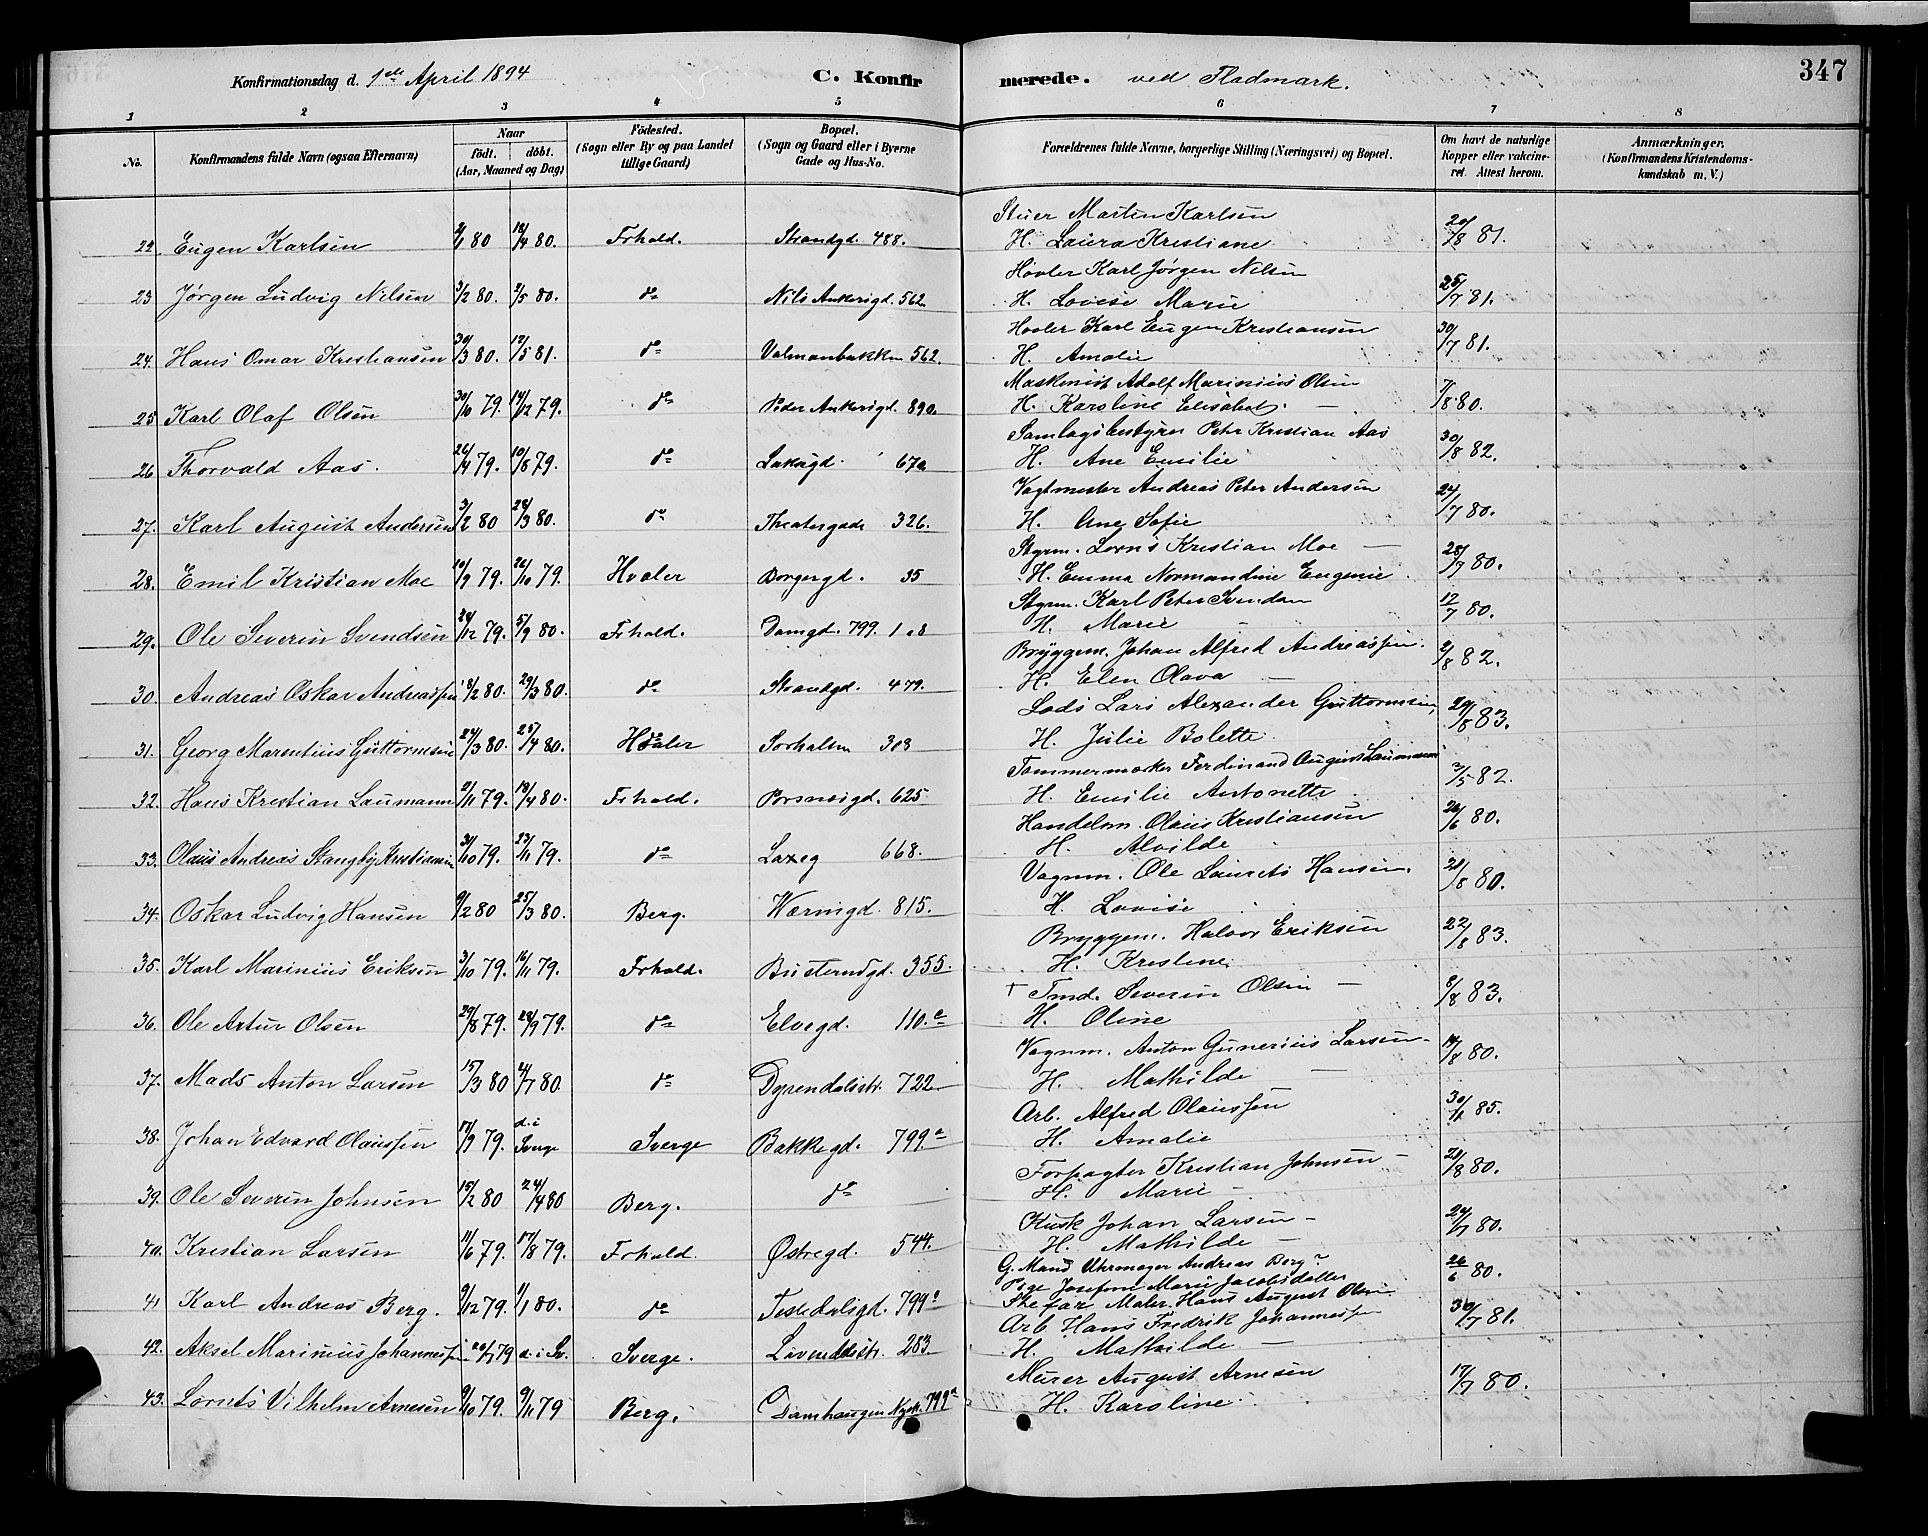 347
Konfirmationsdag d. 1ste April 1894 C. Konfirmerede. ved Fladmark.
1 2 3 4 5 6 7 8
No. Konfirmandens fulde Navn (ogsaa Efternavn) Naar födt. döbt. (Aar, Maaned og Dag) Födested. (Sogn eller By og paa Landet tillige Gaard) Bopæl. (Sogn og Gaard eller i Byerne Gade og Hus-No. Forældrenes fulde Navne, borgerlige Stilling (Næringsvei) og Bopæl. Om havt de naturlige Kopper eller vakcineret. Attest herom. Anmærkninger. (Konfirmandens Kristendomskundskab m. V.)
22. Eugen Karlsen 2/1 80 18/4 80. Frhald. Strandgd. 488. Martin Karlsen 20/8 81.
H. Laura Kristiane
23 Jørgen Ludvig Nilsen 3/2 80. 2/5 80. do Nils Ankersgd. 562 Høvler Karl Jørgen Nilsen 25/7 81.
H. Lovise Marie
24. Hans Omar Kristiansen 30/3 80. 12/5 81. do Valmanbakken 562. Høvler Karl Eugen Kristiansen 30/7 81.
H. Amalie
25 Karl Olaf Olsen 30/10 79. 14/12 79. do Peder Ankersgd. 890. Maskinist Adolf Marinius Olsen 7/8 80.
H. Karoline Elisabet.
26 Thorvald Aas. 26/4 79. 10/8 79. do 67a Samlagsbestyrer Peter Kristian Aas 30/8 82.
H. Ane Emilie
27. Karl August Andersen 3/2 80 28/3 80. do Theatergade 326. Vagtmester Andreas Peter Andersen 24/7 80.
H. Ane Sofie
28. Emil Kristian Moe 10/9 79. 26/10 79. Hvaler Borgergd. 35 Styrm. Kristian Moe 28/7 80.
H. Emma Normandine Eugenie
29. Ole Severin Svendsen 24/12 79. 5/9 80. Frhald. Damgd. 799. Styrm. Karl Peter Svendsen 12/7 80.
H. Marie
30. Andreas Oskar Andreassen 8/2 80. 29/3 80. do Strandgd. 479. Bryggem. Johan Alfred Andreassen. 2/8 82.
H. Elen Olava
31. Georg Marentius Guttormsen 24/3 80. 25/4 80. Hvaler Sorhalm 303 Lods Lars Alexander Guttormsen 29/8 83.
H. Julie Bolette
32. Hans Kristian Laumann 2/11 79. 18/4 80. Frhald. Porsnesgd. 625 Tømmermærker Ferdinand August Laumann 2/5 82.
H. Emilie Antonette
33. Olaus Andreas Stangby Kristiansen 31/10 79. 23/11 79. do Laxeg 668. Handelsm. Olaus Kristiansen 26/6 80.
H. Alvilde
34. Oskar Ludvig Hansen 9/2 80 25/3 80. Berg. Wærnsgd. 815. Vognm. Ole Laurits Hansen. 21/8 80.
H. Lovise
35. Karl Marinius Eriksen 3/10 79. 16/11 79. Frhald. Busterudgd. 355. Bryggem. Halvor Eriksen 22/8 83.
H. Kristine
36. Ole Artur Olsen 29/8 79. 28/9 79. do Elvegd. 110.c + Tmd. Severin Olsen 8/8 83.
H. Oline
37. Mads Anton Larsen 15/3 80 24/7 80. do Dyrendalsstr. 722 Vognm. Anton Gunerius Larsen 14/8 80.
H. Mathilde
38. Johan Edvard Olaussen 17/9 79. d. i Sverge Sverge Bakkegd. 799a Arb. Alfred Olaussen 30/1 85.
H. Amalie
39. Ole Severin Johnsen 15/2 80 24/4 80 Berg. do Forpagter Kristian Johnsen 21/8 80.
H. Marie
40. Kristian Larsen 11/6 79. 17/8 79. Frhald. Østregd. 544. Kusk Johan Larsen 24/7 80.
H. Mathilde
41 Karl Andreas Berg. 9/12 79. 1/1 80. do Tistedalsgd. 799a G. Mand Uhrmager Andreas Berg. 26/6 80.
Pige Josefine Marie Jacobsdatter
Stefar Maler Hans August Olsen
42. Aksel Marinius Johannessen 20/7 79 d. i Sv. Sverge. 283. Arb. Hans Fredrik Johannessen 30/7 81.
H. Mathilde
43. Lornts Vilhelm Arnesen 9/10 79. 9/11 79 Berg. Damhaugen 799a Murer August Arnesen 17/7 80.
H. Karoline